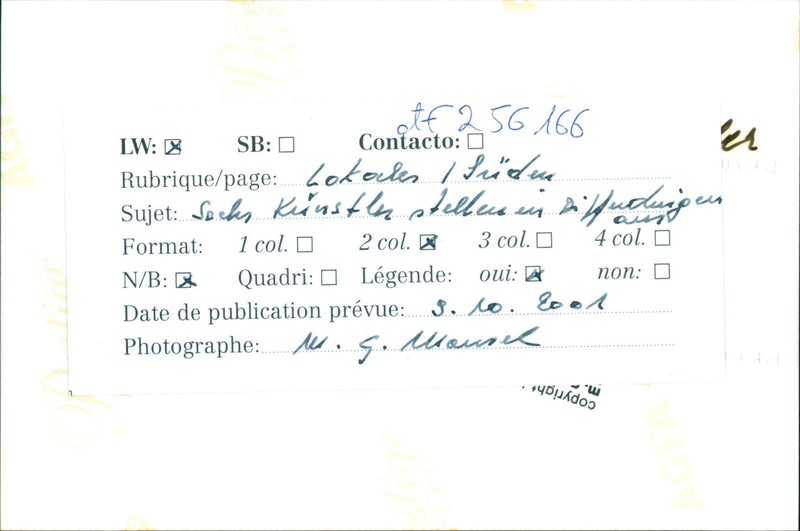 otf 256 166
LW: ☒ SB: ☐ Contacto: ☐
Rubrique/page: Lokales / Süden
Sujet: Sechs Künstler stellen in Differdingen aus
Format: 1 col. ☐ 2 col. ☒ 3 col. ☐ 4 col. ☐
N/B: ☒ Quadri: ☐ Légende: oui: ☒ non: ☐
Date de publication prévue: 3. 10. 2001
Photographe: M. G. Mansel
copyright
AGFA
Prestige
AGFA